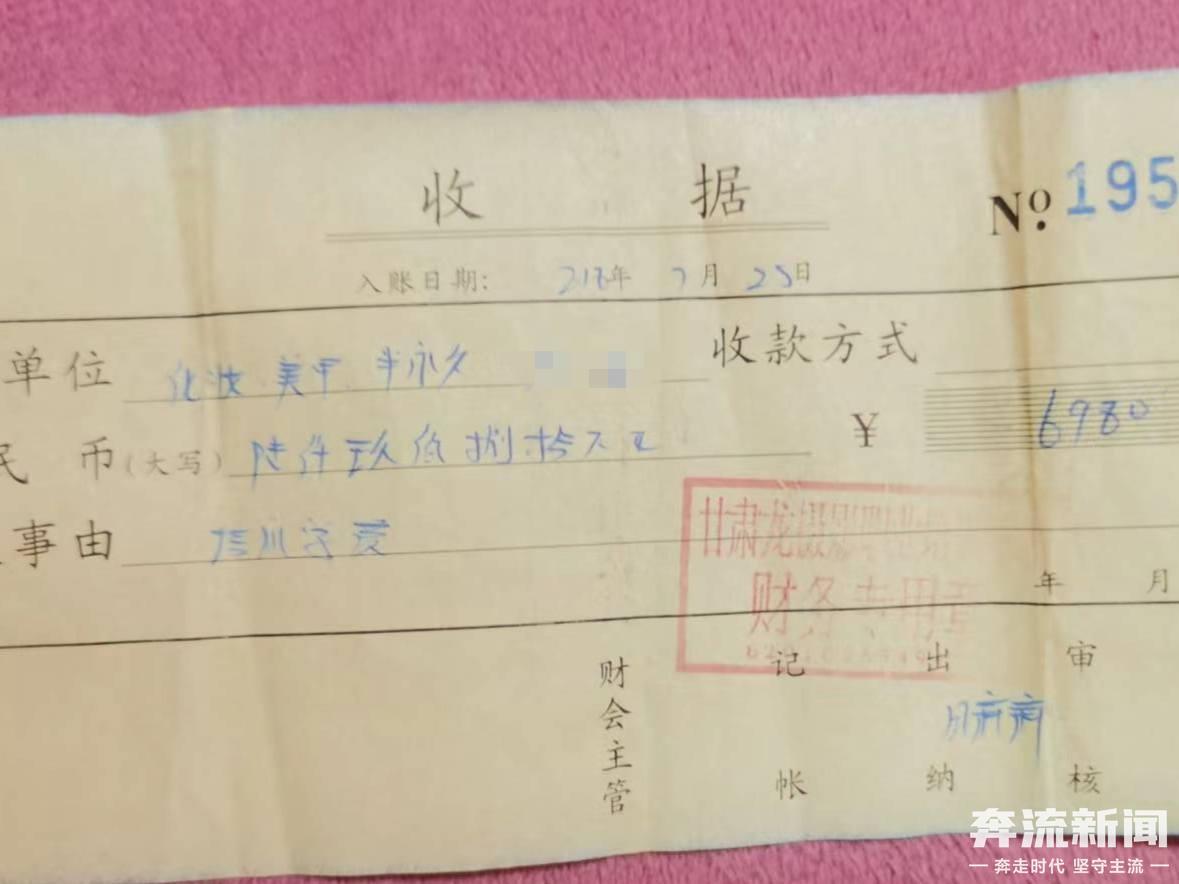 收 据
Nº 195
入账日期: 218年 7月 25日
单位 化妆 美甲 半永久 收款方式
民 币(大写) 陆仟玖佰捌拾 元 ¥ 6980
事由 培训
甘肃龙摄影职业
财务专用章
年 月
财会主管 记帐 出纳 审核
奔流新闻
奔走时代 坚守主流